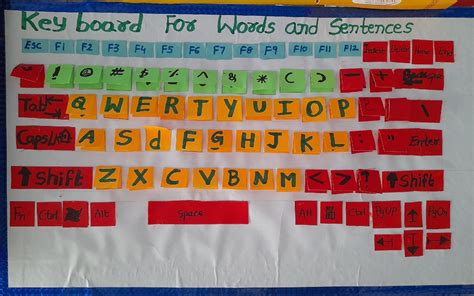 Keyboard For Words and Sentences
Esc F1 F2 F3 F4 F5 F6 F7 F8 F9 F10 F11 F12 Insert Delete Home End
~ ! @ # $ % ^ & * ( ) - + Backspace
Tab Q W E R T Y U I O P \
CapsLock A S d F G H J K L : " Enter
Shift Z X C V B N M < > ? Shift
Fn Ctrl Alt Space Alt Ctrl PgUp ↑ PgDn
← ↓ →